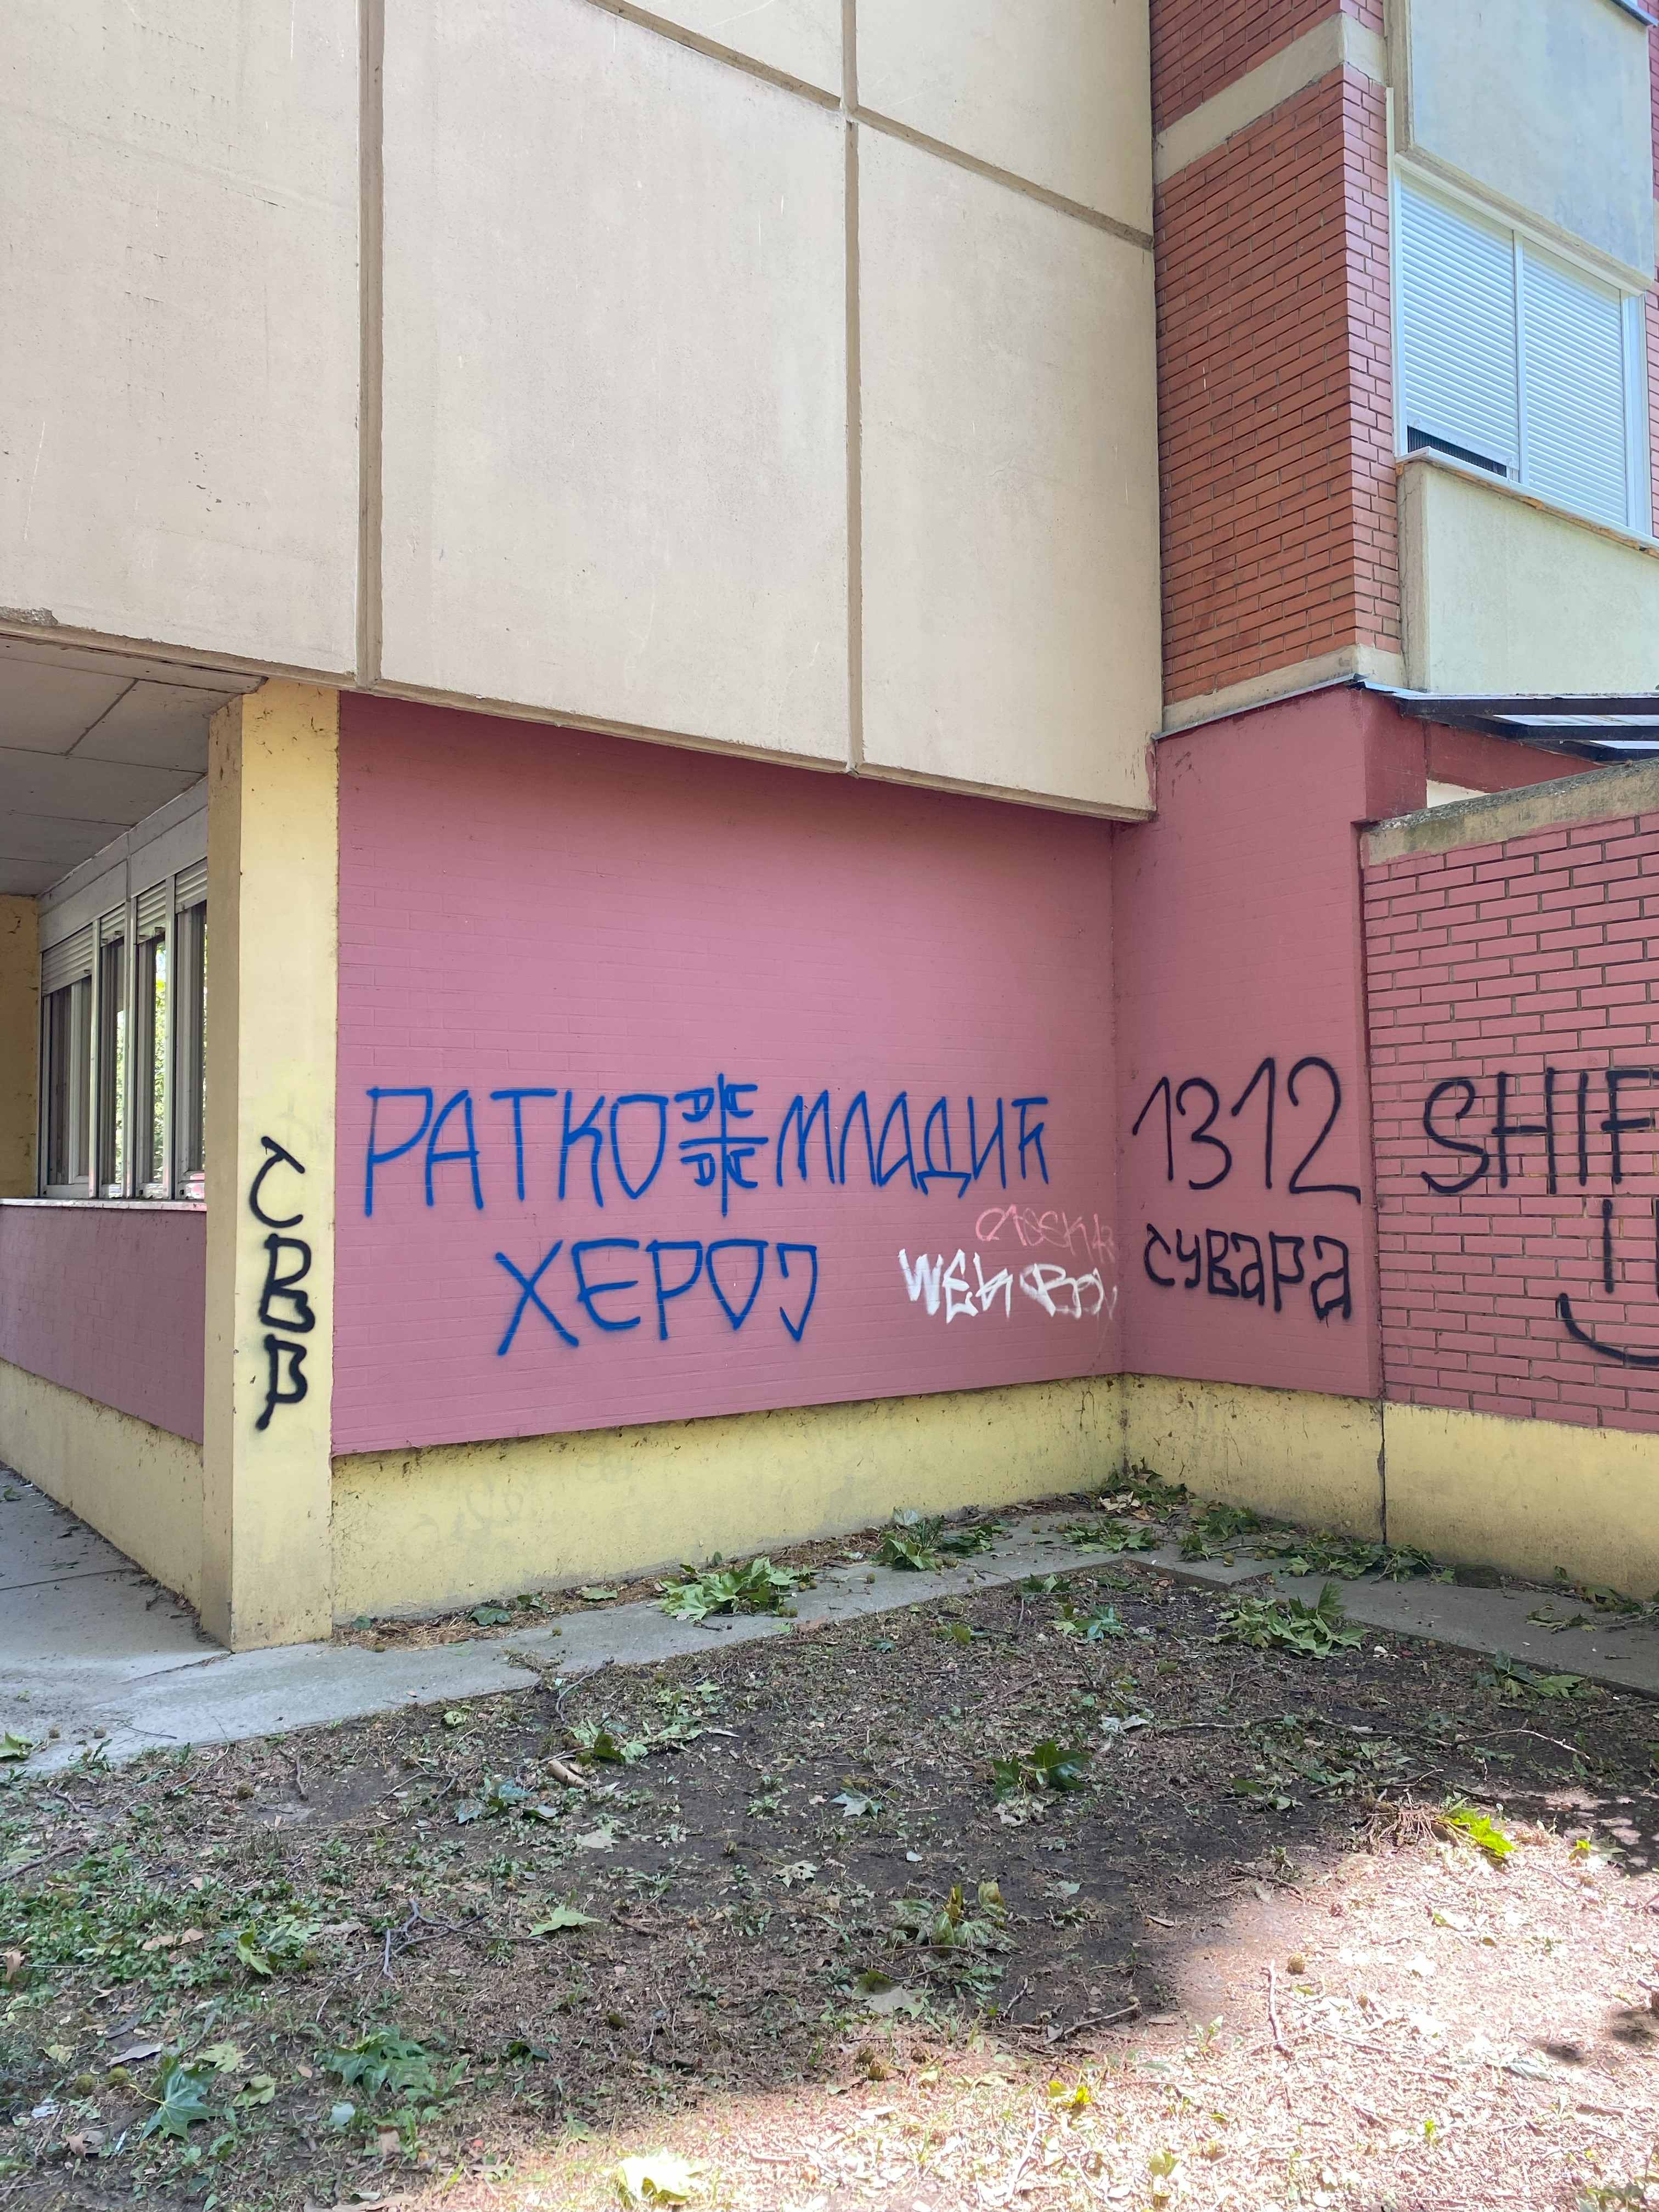 СВР
РАТКО МЛАДИЋ
ХЕРОЈ
WEK BOY
1312
сувара
SHIF